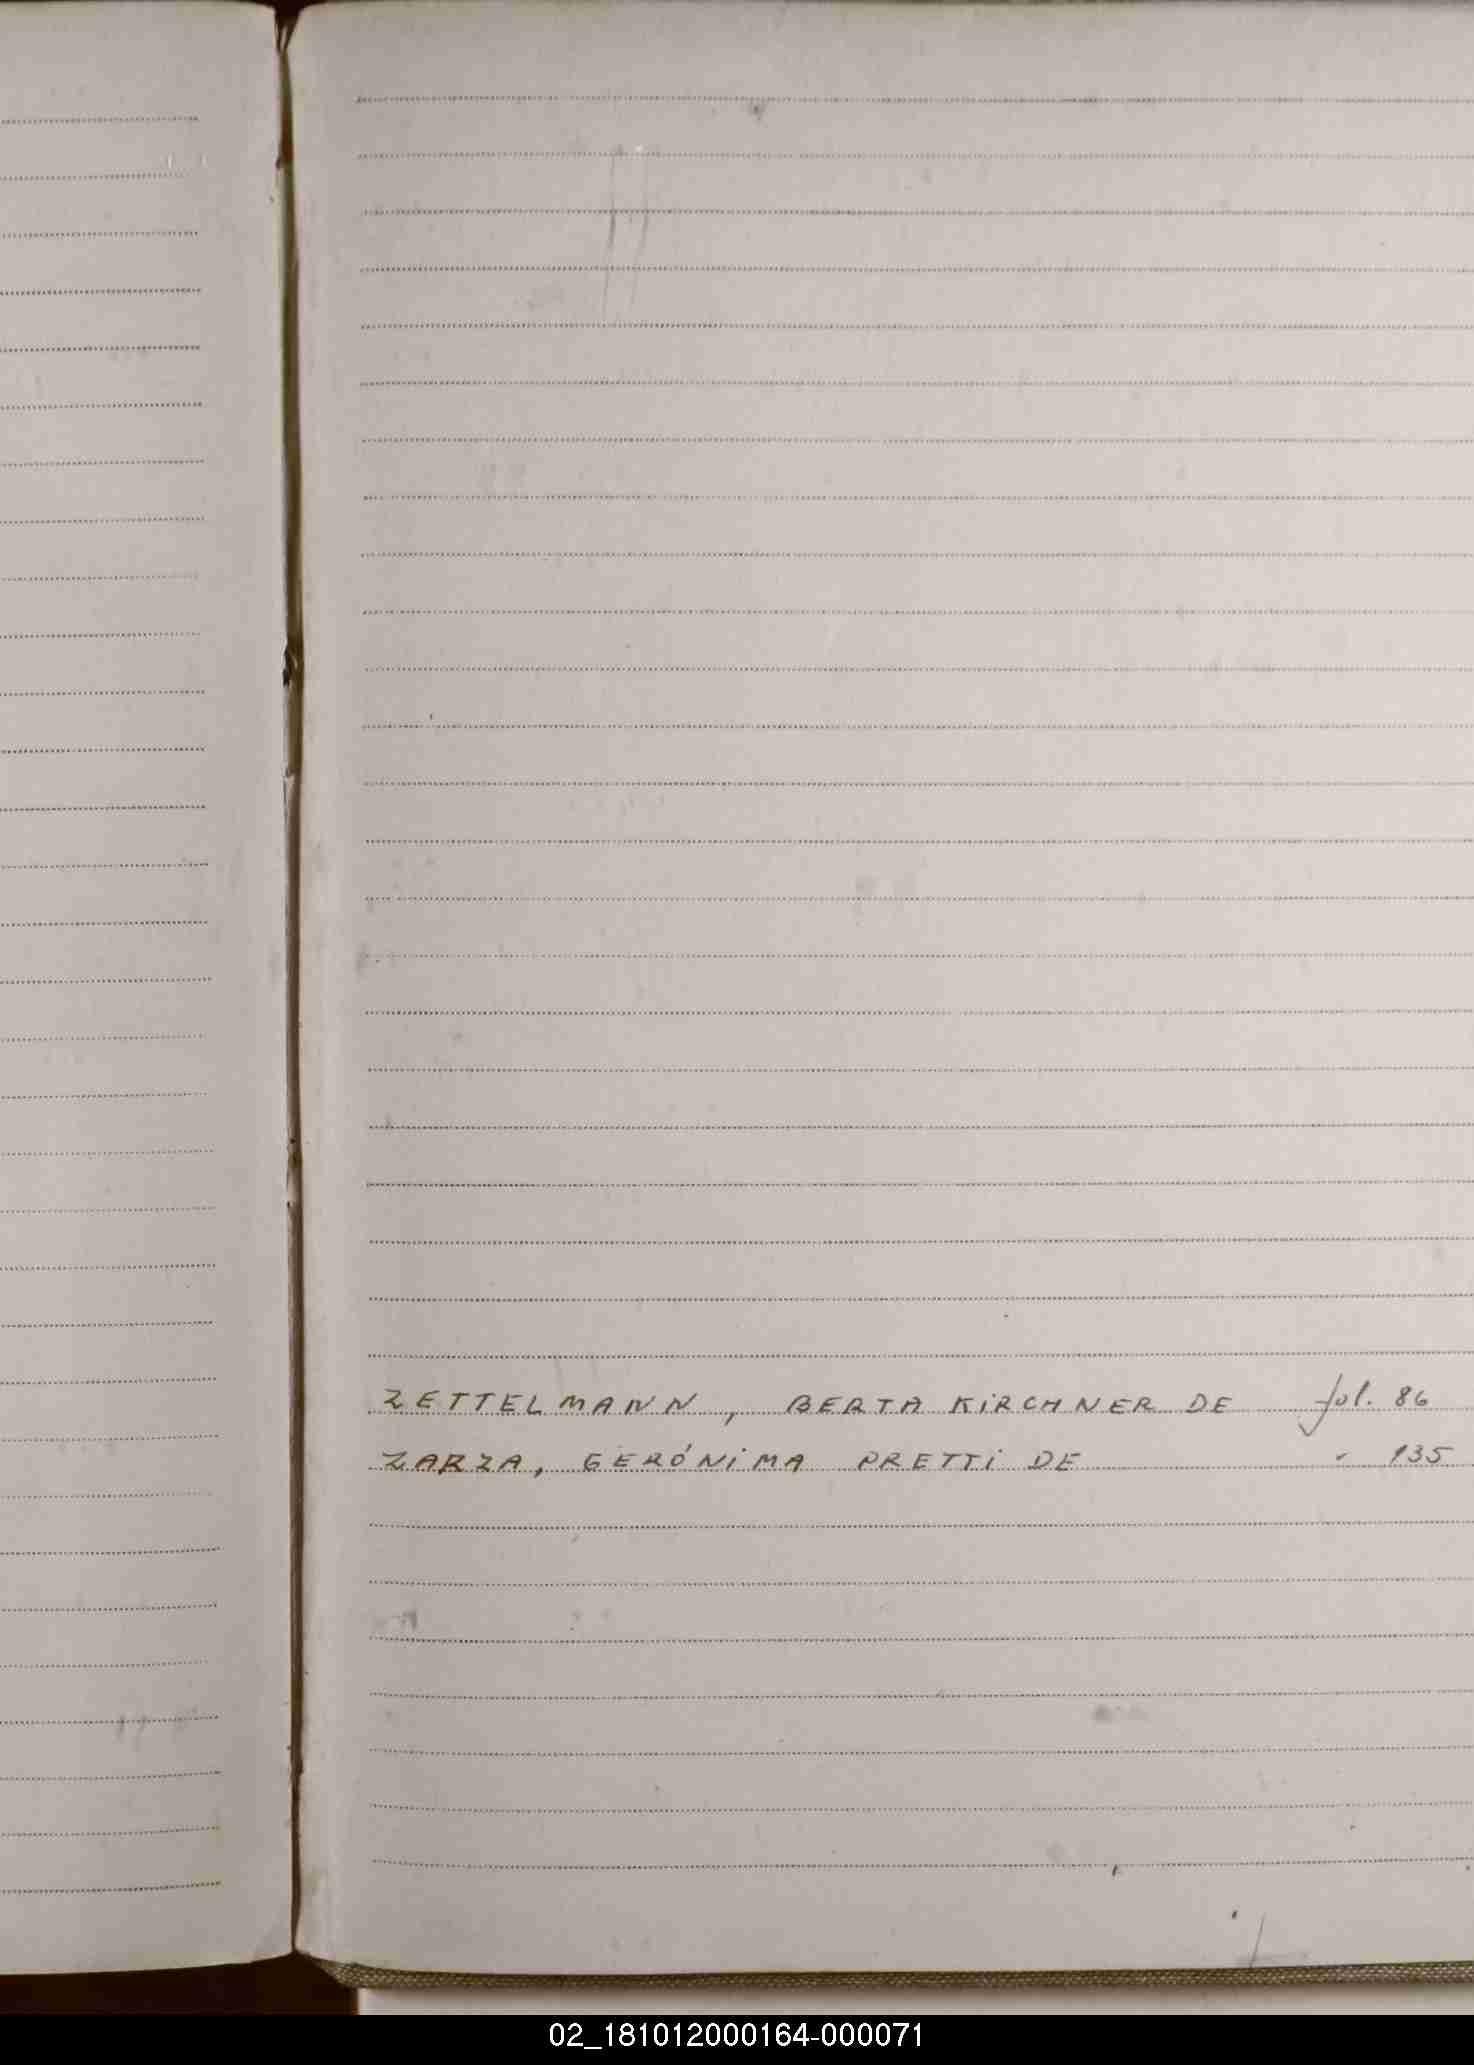 ZETTELMANN, BERTA KiRCHNER DE fol. 86
ZARZA, GERÓNiMA PRETTi DE " 135
02_181012000164-000071